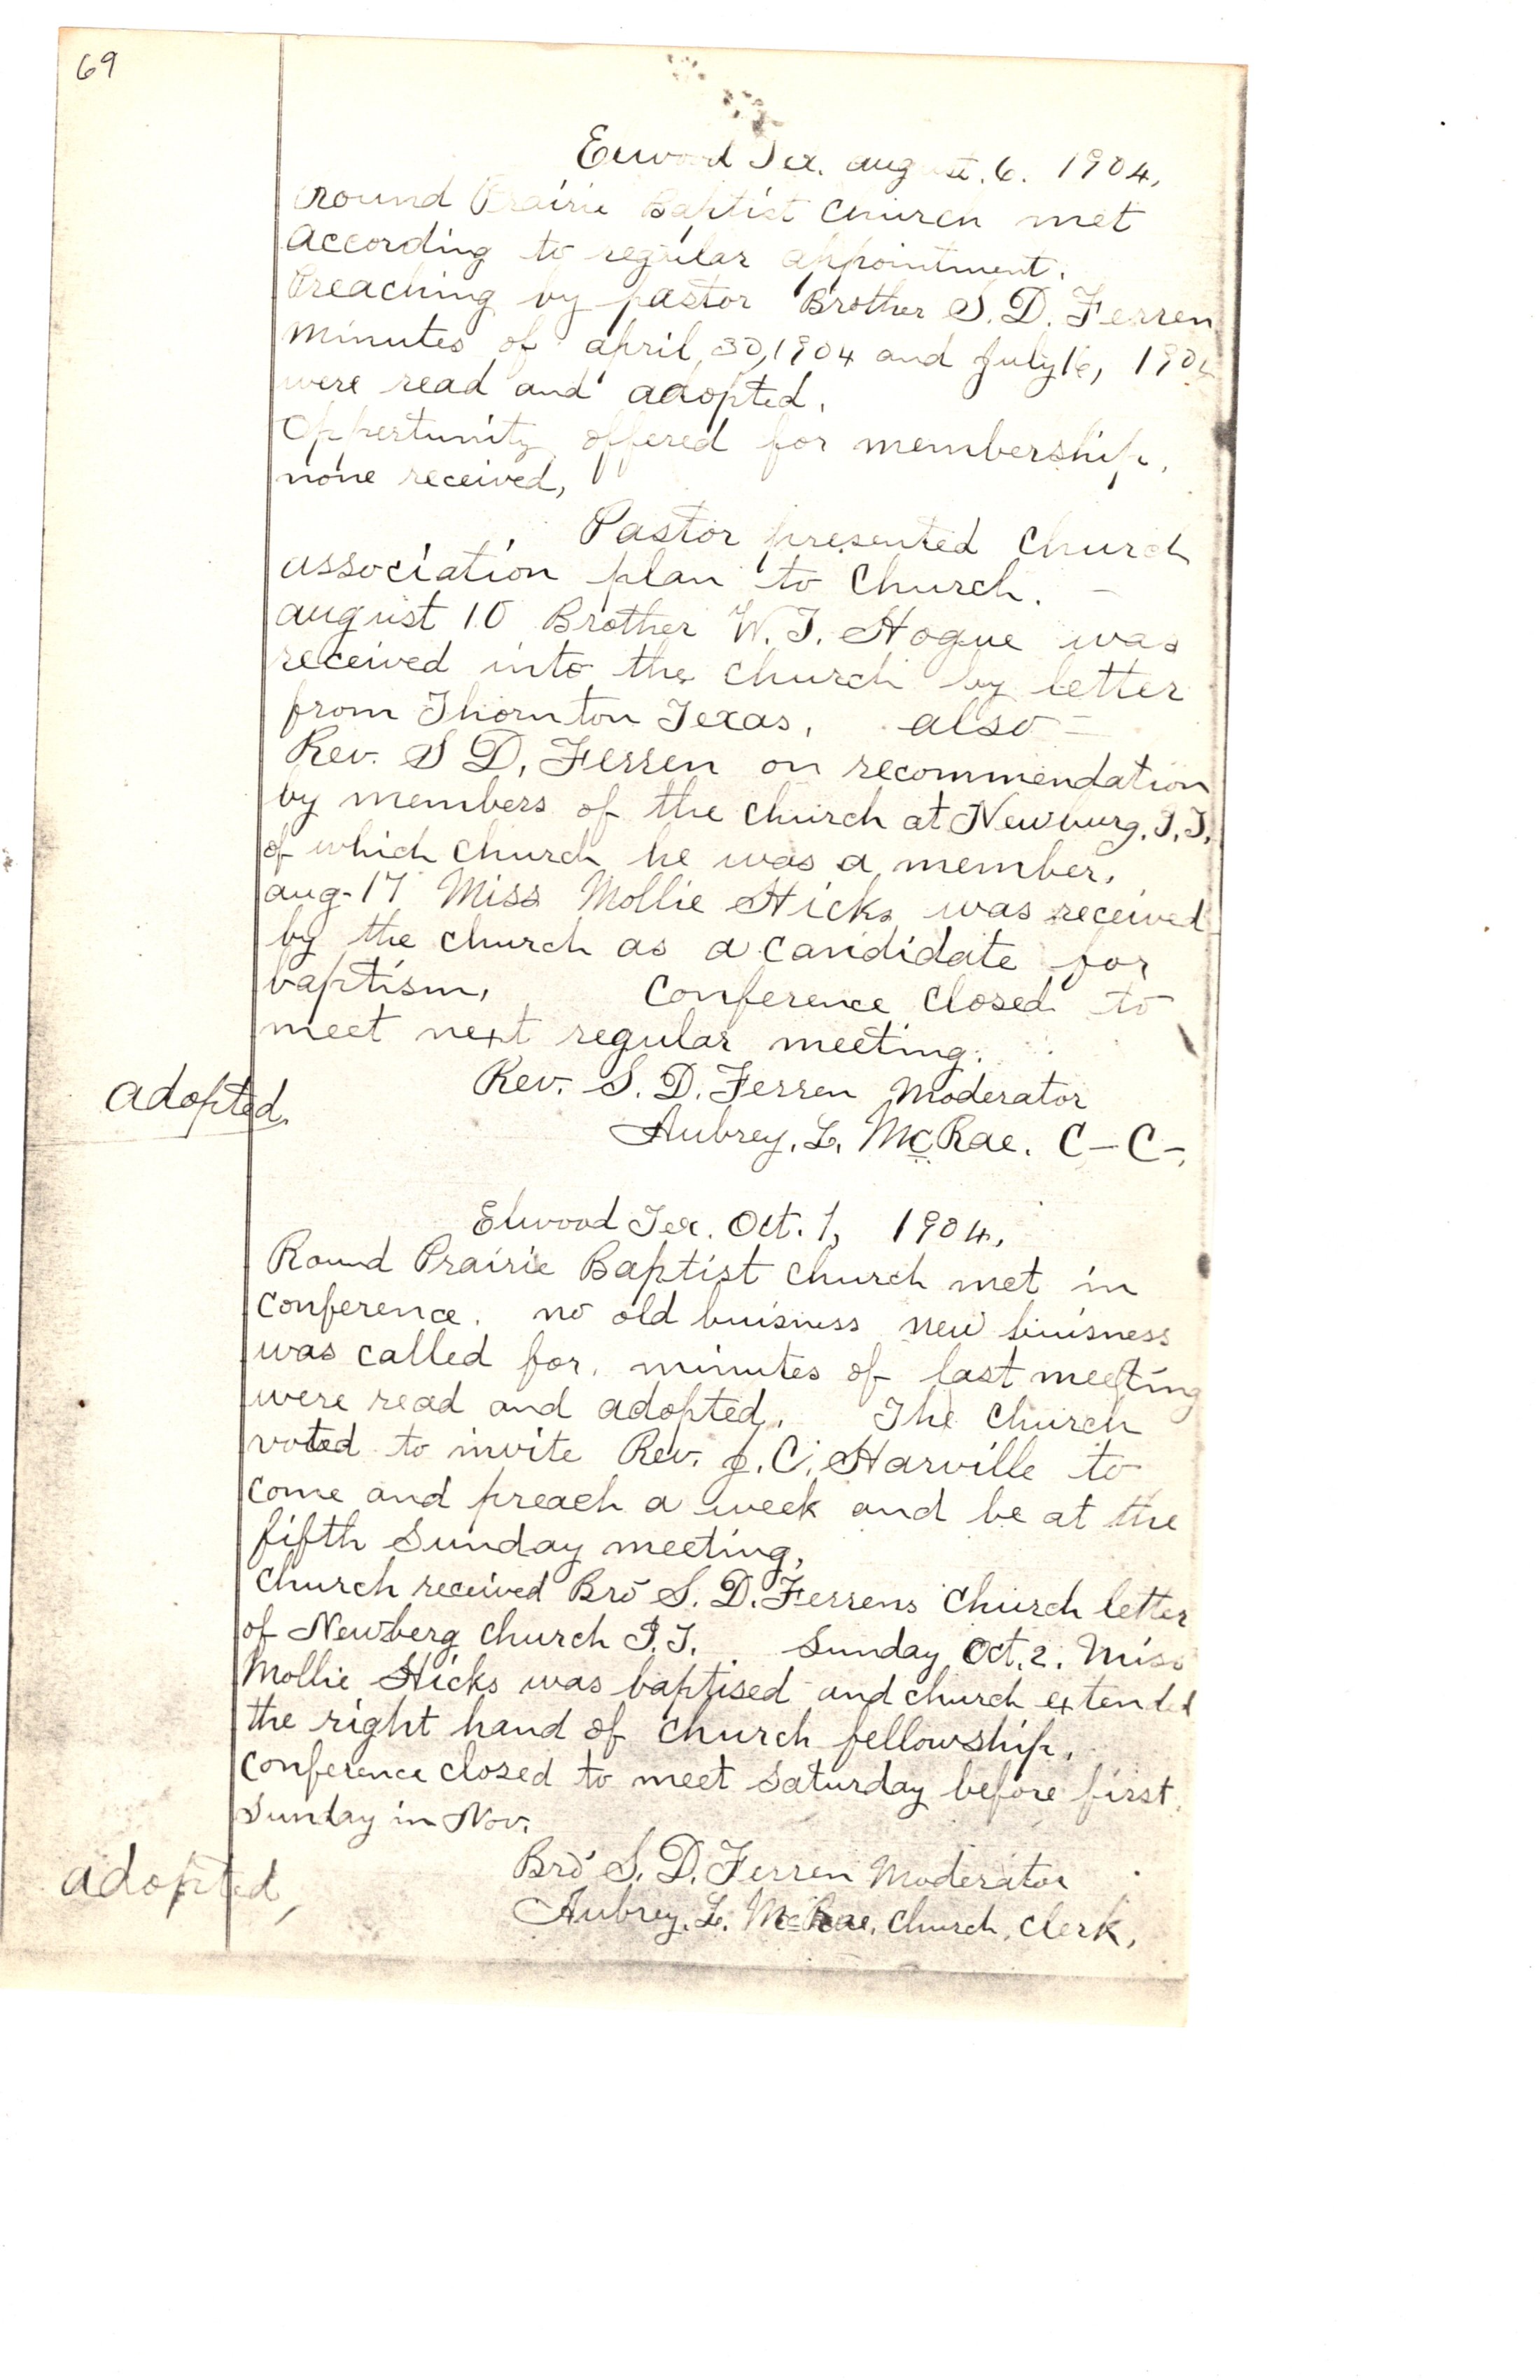 69
Elwood Tex. august. 6. 1904,
Round Prairie Baptist Church met
According to regular appointment.
Preaching by pastor Brother S. D. Ferren
Minutes of april, 30, 1904 and July 16, 1904
were read and adopted.
Oppertunity offered for membership,
none received,
Pastor presented Church
association plan to Church.
august 10 Brother W. T. Hogue was
received into the church by letter
from Thornton Texas, also
Rev. S D, Ferren on recommendation
by members of the church at Newburg, I, T,
of which church he was a member,
aug-17 Miss Mollie Hicks was received
by the church as a candidate for
baptism, Conference closed to
meet next regular meeting.
Rev. S. D. Ferren Moderator
adopted.
Aubrey, L, McRae. C-C-,
Elwood Tex. Oct. 1, 1904,
Round Prairie Baptist church met in
conference. no old buisness new buisness
was called for. minutes of last meeting
were read and adopted, The church
voted to invite Rev. J. C. Harville to
come and preach a week and be at the
fifth Sunday meeting,
Church received Bro S. D. Ferrens Church letter
of Newberg church I. T. Sunday, Oct. 2. Miss
Mollie Hicks was baptised and church extended
the right hand of church fellowship,
conference closed to meet Saturday before first
Sunday in Nov.
Bro S. D. Ferren Moderator
adopted,
Aubrey, L. McRae, Church, Clerk,